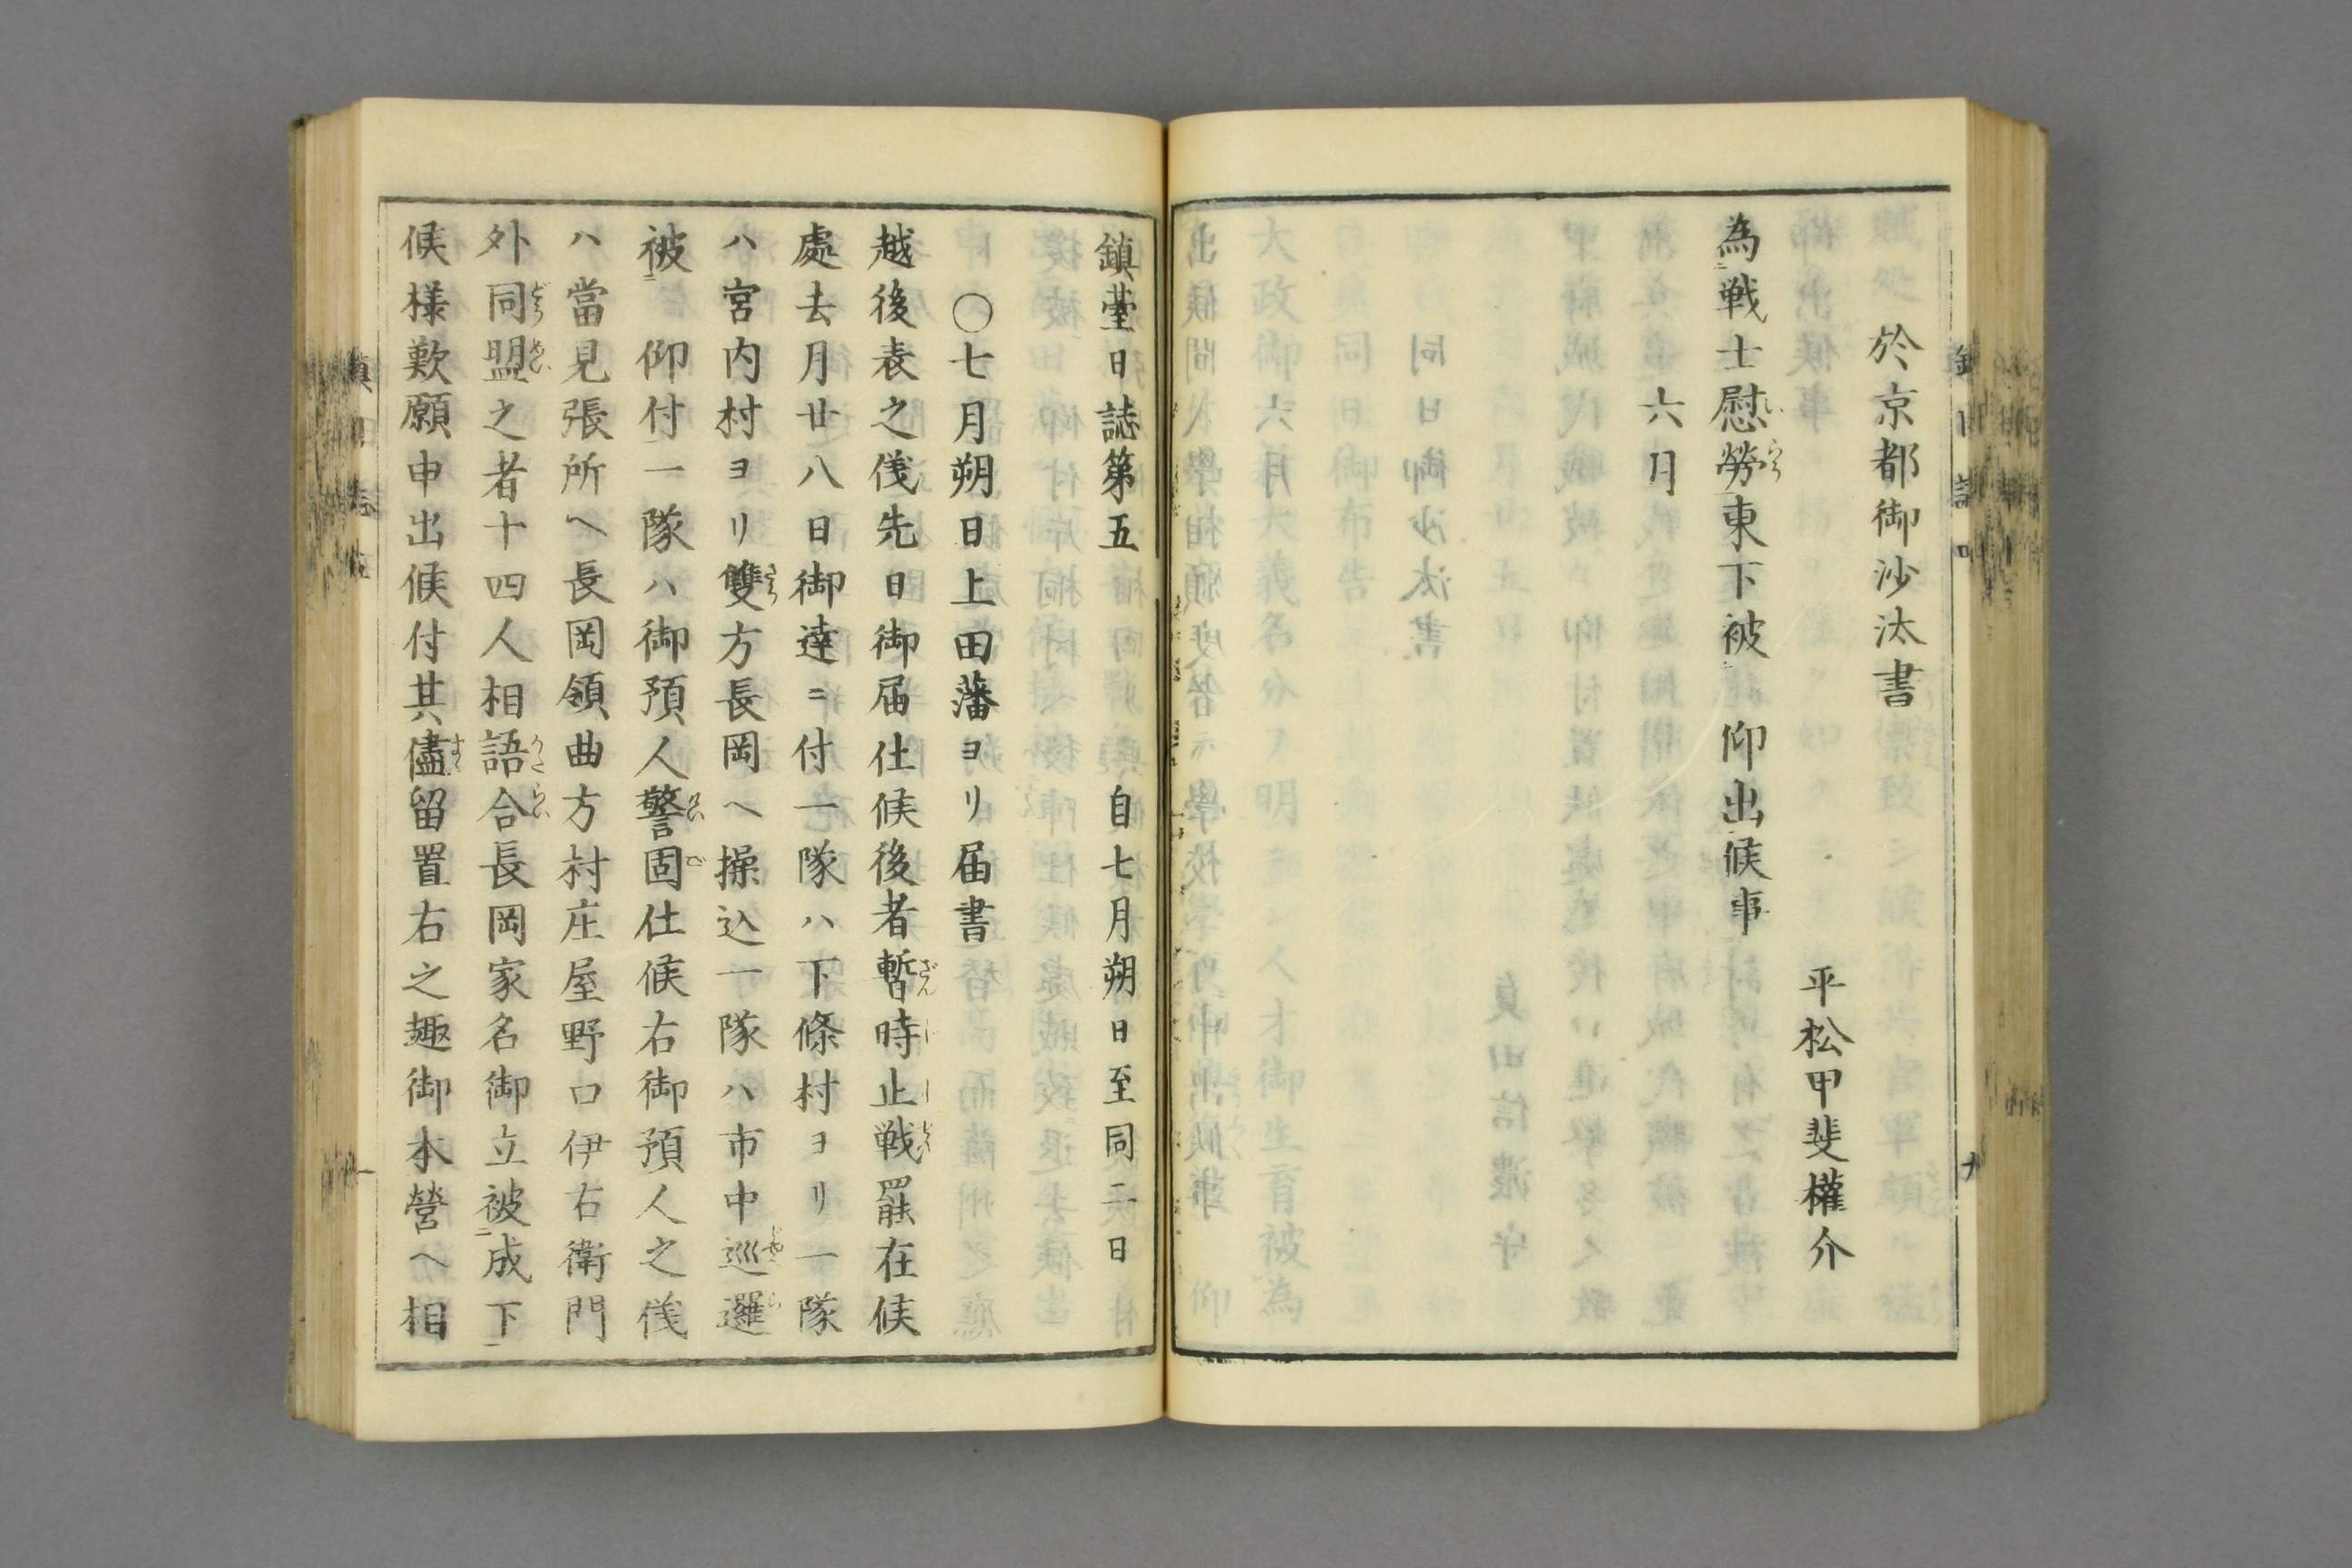 於京都御沙汰書
平松甲斐權介
為戦士慰勞東下被　仰出候事
六月
鎮臺日誌第五　自七月朔日至同二日
〇七月朔日上田藩ヨリ届書
越後表之儀先日御届仕候後者暫時止戦罷在候
處去月廿八日御達ニ付一隊ハ下條村ヨリ一隊
ハ宮内村ヨリ雙方長岡へ操込一隊ハ市中巡邏
被　仰付一隊ハ御預人警固仕候右御預人之儀
ハ當見張所へ長岡領曲方村庄屋野口伊右衛門
外同盟之者十四人相語合長岡家名御立被成下
候様歎願申出候付其儘留置右之趣御本營へ相